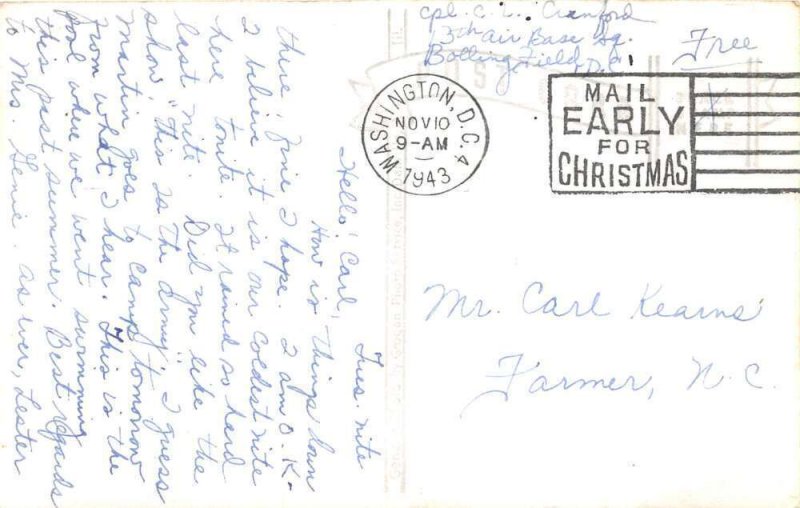 cpl. C. L. Cranford
13th Air Base Sq.
Bolling Field
D.C.
Free
WASHINGTON, D.C. 4
NOV 10
9-AM
1943
MAIL
EARLY
FOR
CHRISTMAS
Mr. Carl Kearns
Farmer, N.C.
Tues. nite
Hello! Carl,
How is things down
there. Fine I hope. I am O.K.
I believe it is our coldest nite
here tonite. It rained so hard
last nite. Did you like the
show "This Is The Army". I guess
Martin goes to camp tomorrow
from what I hear. This is the
pool where we went swimming
this past summer. Best regards
to Mrs Genie. As ever, Lester